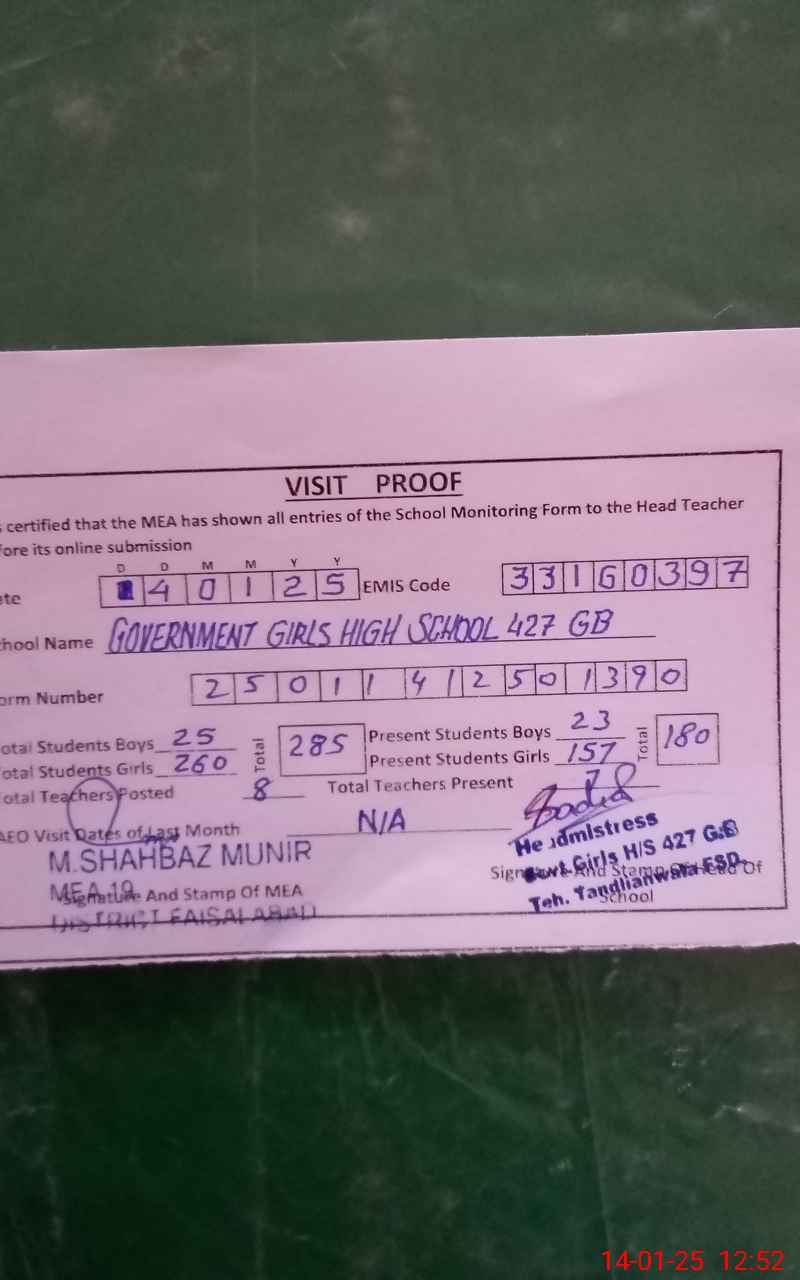 VISIT PROOF
certified that the MEA has shown all entries of the School Monitoring Form to the Head Teacher
fore its online submission
D D M M Y Y
ate 140125 EMIS Code 33160397
hool Name GOVERNMENT GIRLS HIGH SCHOOL 427 GB
orm Number 25011412501390
otal Students Boys 25 Total 285 Present Students Boys 23 Total 180
otal Students Girls 260 Present Students Girls 157
otal Teachers Posted 8 Total Teachers Present 7
AEO Visit Dates of Last Month N/A
M.SHAHBAZ MUNIR
MEA 19
Signature And Stamp Of MEA
DISTRICT FAISALABAD
Headmistress
Govt Girls H/S 427 G.B
Signature And Stamp Of Head Of
School
Teh. Tandlianwala FSD.
14-01-25 12:52